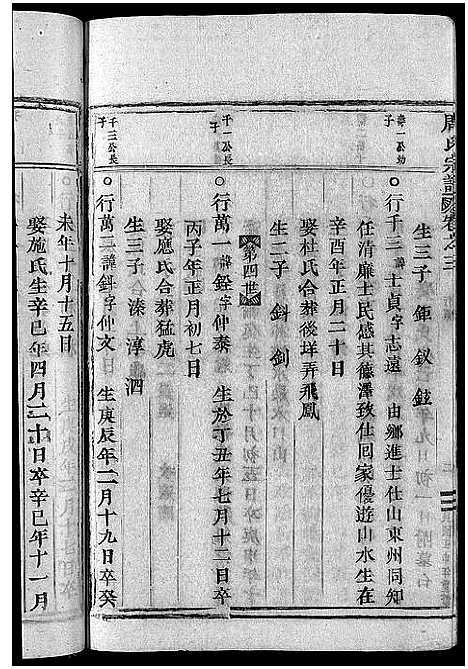 周氏宗譜 卷之三
生三子 鉅 釵 鉉
壽一公幼子
○行千三 諱士貞字志遠 由鄉進士仕山東州同知
任清廉士民感其德澤致仕回家優遊山水生在
辛酉年正月二十日
娶杜氏合葬後垟弄飛鳳
生二子 鈄 釗
第四世
千一公長子
○行萬一 諱銓字仲泰 生於丁丑年七月十二日卒
丙子年正月初七日
娶應氏合葬猛虎
生三子 溱 淳 泗
千三公長子
○行萬二 諱鈄字仲文 生庚辰年二月十九日卒癸
未年十月十五日
娶施氏生辛巳年四月二十日卒辛巳年十一月